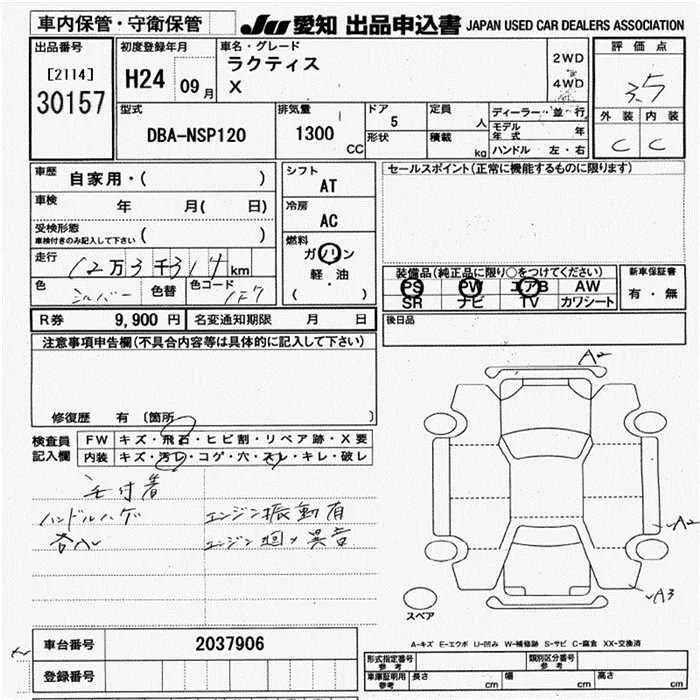 車内保管・守衛保管 JU 愛知 出品申込書 JAPAN USED CAR DEALERS ASSOCIATION
出品番号 初度登録年月 車名・グレード 評価点
[2114] H24 09月 ラクティス 2WD 3.5
30157 X 4WD 外装 内装
型式 排気量 ドア 定員 ディーラー・並行 C C
DBA-NSP120 1300 CC 5 人 モデル年式 年
形状 積載 kg ハンドル 左・右
車歴 自家用・( ) シフト セールスポイント(正常に機能するものに限ります)
AT
車検 年 月( 日) 冷房
AC
受検形態 ( )
車検付きのみ記入して下さい
燃料
走行 12万3千314km ガソリン 装備品(純正品に限り○をつけてください) 新車保証書
軽・油 PS PW エアB AW 有・無
色 シルバー 色替 色コード 1F7 ( ) SR ナビ TV カワシート
R券 9,900 円 名変通知期限 月 日 後日品
注意事項申告欄(不具合内容等は具体的に記入して下さい)
修復歴 有 〔箇所 〕
A2
検査員 FW キズ・飛石・ヒビ割・リペア跡・X要
記入欄 内装 キズ・汚レ・コゲ・穴・スレ・キレ・破レ
毛付着
ハンドルハゲ エンジン振動有
エンジン廻り異音
A2
A3
スペア
車台番号 2037906
A-キズ E-エクボ U-凹み W-補修跡 S-サビ C-腐食 XX-交換済
登録番号
形式指定番号 参考 類別区分番号 参考
車庫証明用 参考 長さ cm 幅 cm 高さ cm